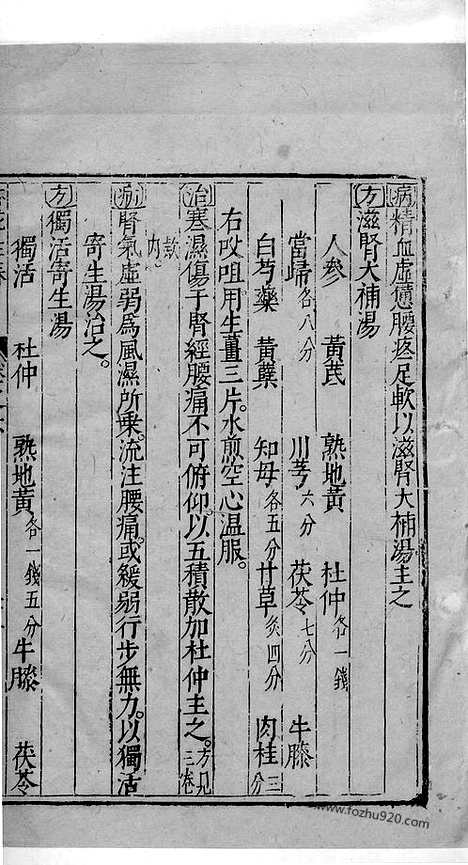 病精血虛憊腰疼足軟以滋腎大補湯主之
方滋腎大補湯
人參 黃芪 熟地黃 杜仲各一錢
當歸各八分 川芎六分 茯苓七分 牛膝
白芍藥 黃蘗 知母各五分 甘草炙四分 肉桂三分
右㕮咀用生薑三片。水煎空心温服。
治寒濕傷于腎經腰痛不可俯仰。以五積散加杜仲主之。方見三卷
內
病腎氣虛弱為風濕所乘。流注腰痛。或緩弱行步無力。以獨活
寄生湯治之。
方獨活寄生湯
獨活 杜仲 熟地黃各一錢五分 牛膝 茯苓
www.fozhu920.com